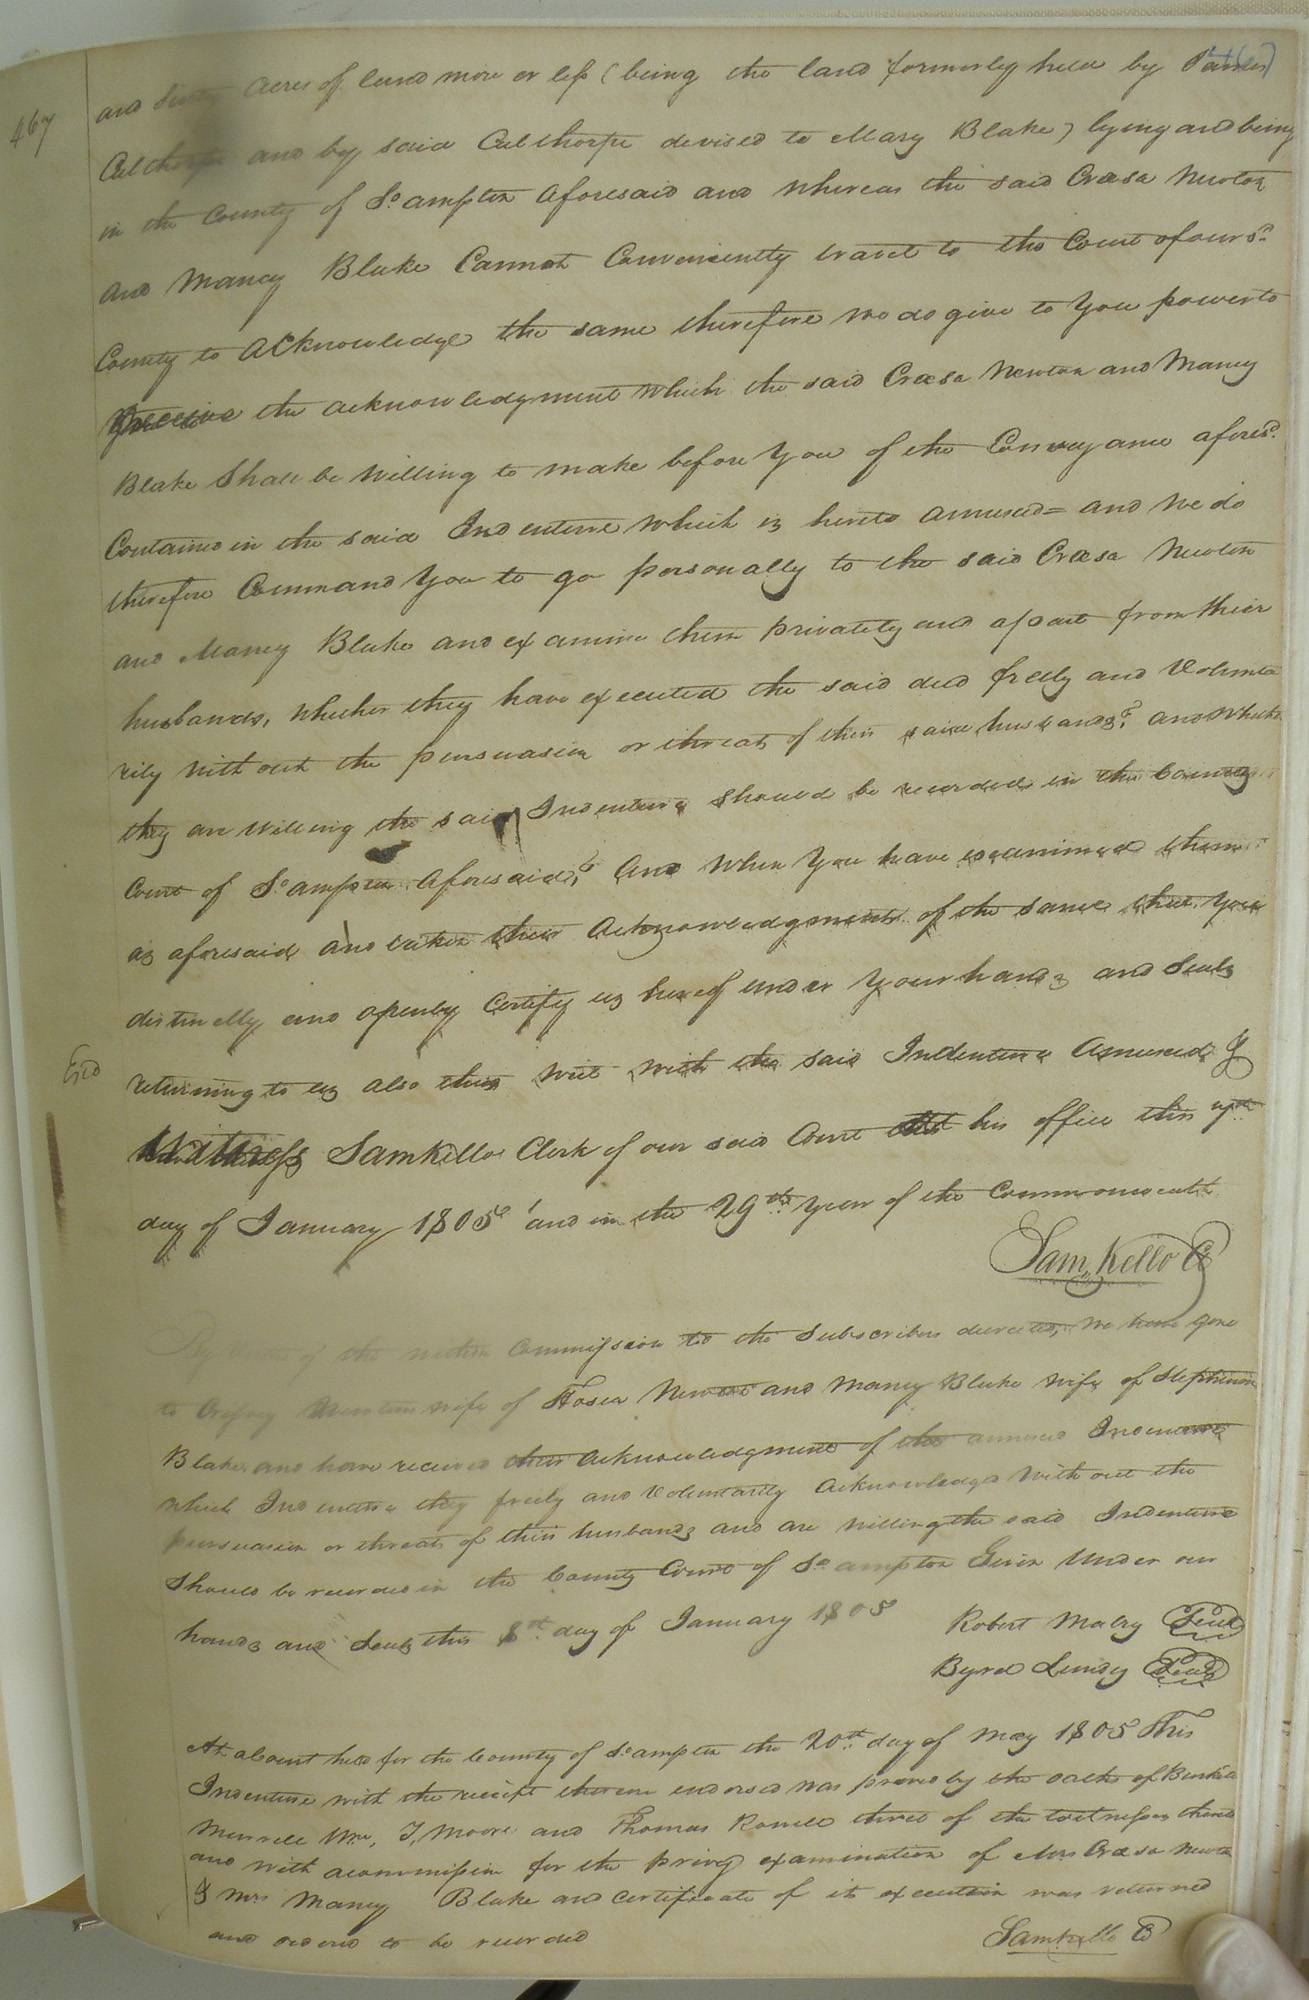 467
and Sixty acres of land more or less (being the land formerly held by James
Calthorpe and by said Calthorpe devised to Mary Blake) lying and being
in the County of So.ampton aforesaid and whereas the said Cræsa Newton
and Mancy Blake Cannot Conveniently travel to the Court of our sd.
County to acknowledge the same therefore we do give to You power to
receive the acknowledgment which the said Cræsa Newton and Mancy
Blake Shall be Willing to make before You of the Conveyance aforesd.
Contained in the said Indenture which is hereto annexed = and we do
therefore Command You to go personally to the said Cræsa Newton
and Mancy Blake and examine them privately and apart from thier
husbands, whether they have executed the said deed freely and Volunta
rily without the persuasion or threats of their said husbands? and whether
they are Willing the said Indenture should be recorded in the County
Court of So.ampton aforesaid? And when You have examined them
as aforesaid and taken their Acknowledgments of the same that You
distinctly and openly Certify us hereof under Your hands and Seals
Exd
returning to us also this writ with the said Indenture annexed &
Witness Samkello Clerk of our said Court at his office this 7th
day of January 1805 and in the 29th year of the Commonwealth
Sam Kello C
of the within Commission to the Subscribers directed, We have gone
to Newton wife of Hosea Newton and Mancy Blake wife of Stephenson
Blake and have received their acknowledgment of the annexed Indenture
which Indenture they freely and Voluntarily acknowledge without the
persuasion or threats of their husbands and are willing the said Indenture
Should be recorded in the County Court of So.ampton Given Under our
hands and Seals this 8th day of January 1805
Robert Mabry Seal
Byrd Lundy Seal
At a Court held for the County of So.ampton the 20th day of May 1805 This
Indenture with the receipt thereon endorsed was proved by the oaths of
Murrell Wm. T. Moore and Thomas Rowell three of the witnesses thereto
and with a commission for the privy examination of Mrs Cræsa Newton
& Mrs Mancy Blake and certificate of its execution was returned
and ordered to be recorded
Samkello C